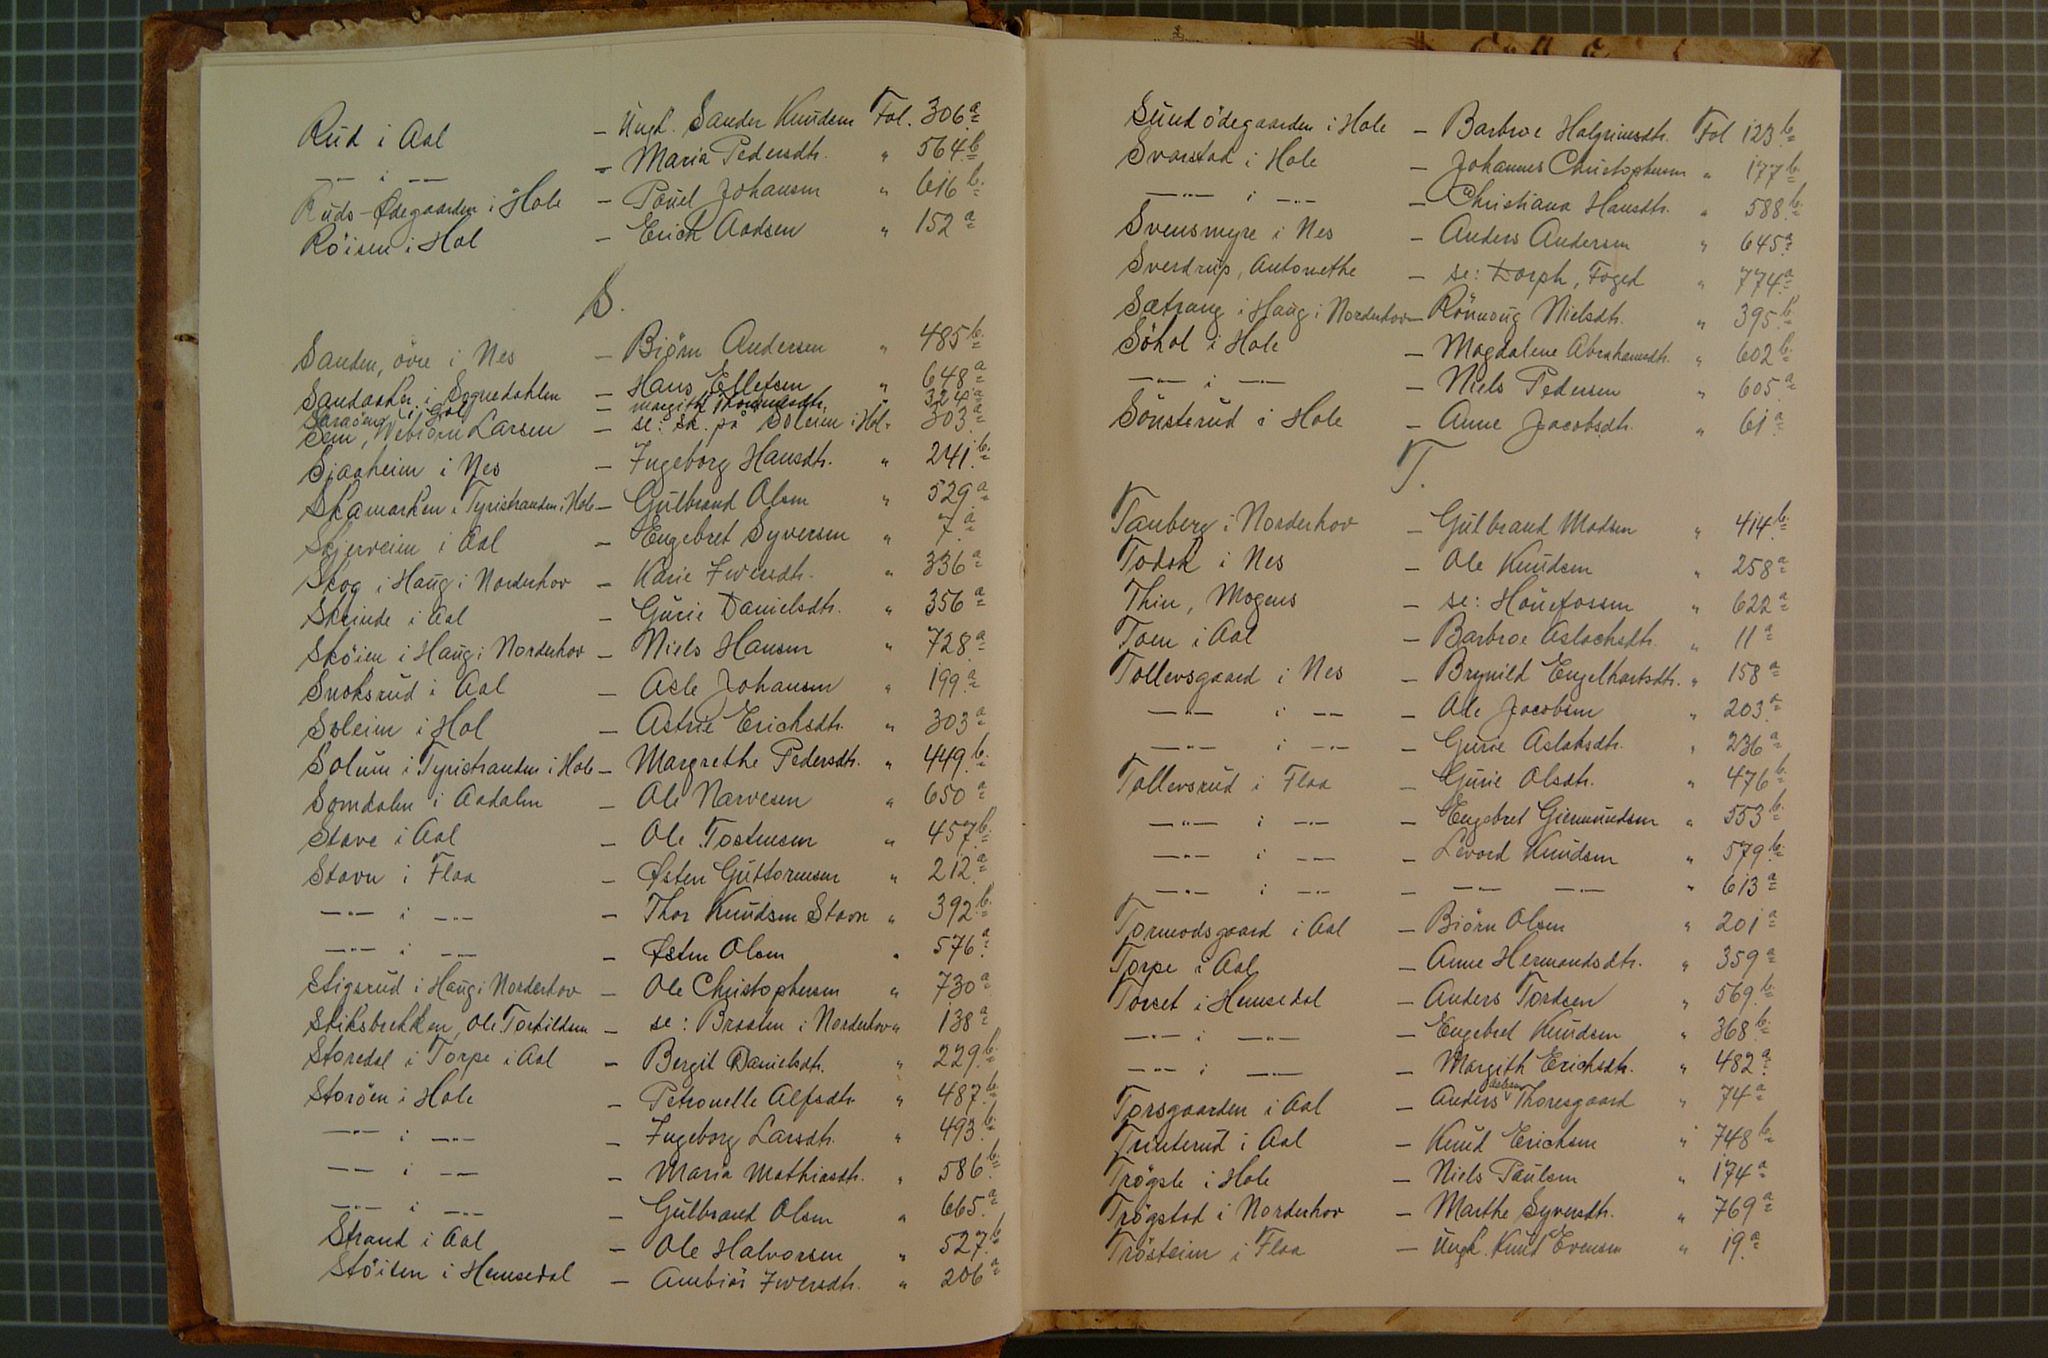 Rud i Aal — Ungk. Sander Knudsen Fol. 306a
—"— i —"— — Maria Pedersdtr. " 564b
Ruds-Ødegaarden i Hole — Pouel Johansen " 616b
Röisen i Hol — Erich Aadsen " 152a
S.
Sanden, övre i Nes — Biörn Andersen " 485b
Sandaker i Sognedahlen — Hans Ellefsen " 648a
Saraöens i Gol — Margith Thommesdtr. " 324a
Sem, Webiörn Larsen — se: Sk. på Soleim i Hol " 303a
Sjaaheim i Nes — Ingeborg Hansdtr. " 241b
Skamarken i Tyristranden i Hole — Gulbrand Olsen " 529a
Skjerveim i Aal — Engebret Syversen " 7a
Skog i Haug i Norderhov — Karie Iversdtr. " 336a
Skrinde i Aal — Gurie Danielsdtr. " 356a
Sköien i Haug i Norderhov — Niels Hansen " 728a
Snoksrud i Aal — Asle Johansen " 199a
Soleim i Hol — Astrie Erichsdtr. " 303a
Solum i Tyristranden i Hole — Margrethe Pedersdtr. " 449b
Somdalen i Aadalen — Ole Narvesen " 650a
Stave i Aal — Ole Tostensen " 457b
Stavn i Flaa — Østen Guttormsen " 212a
—"— i —"— — Thor Knudsen Stavn " 392b
—"— i —"— — Østen Olsen " 576a
Stigsrud i Haug i Norderhov — Ole Christophersen " 730a
Stiksbrekken, Ole Torkildsen — se: Braaten i Norderhov " 138a
Storedal i Torpe i Aal — Bergit Danielsdtr. " 229b
Storöen i Hole — Petronelle Alfsdtr " 487b
—"— i —"— — Ingeborg Larsdtr. " 493b
—"— i —"— — Maria Mathiasdtr. " 586b
—"— i —"— — Gulbrand Olsen " 665a
Strand i Aal — Ole Halvorsen " 527b
Stöiten i Hemsedal — Ambiör Iversdtr. " 206a
Sundödegaarden i Hole — Barbroe Halgrimsdtr. Fol 123b
Svarstad i Hole — Johannes Christophersen " 177b
—"— i —"— — Christiana Hansdtr. " 588b
Svensmyre i Nes — Anders Andersen " 645a
Sverdrup, Antonethe — se: Dorph, Foged " 774a
Sætrang i Haug i Norderhov — Rönnoug Nielsdtr. " 395b
Söhol i Hole — Magdalene Abrahamsdtr. " 602b
—"— i —"— — Niels Pedersen " 605a
Sönsterud i Hole — Anne Jacobsdtr. " 61a
T.
Tanberg i Norderhov — Gulbrand Madsen " 414b
Todok i Nes — Ole Knudsen " 258a
Thiu, Mogens — se: Hönefossen " 622a
Toen i Aal — Barbroe Aslachsdtr. " 11a
Tollevsgaard i Nes — Brynild Engelhartsdtr. " 158a
—"— i —"— — Ole Jacobsen " 203a
—"— i —"— — Gurie Aslaksdtr. " 236a
Tollevsrud i Flaa — Gurie Olsdtr. " 476b
—"— i —"— — Engebret Giermundsen " 553b
—"— i —"— — Levord Knudsen " 579b
—"— i —"— — —"— —"— " 613a
Tormodsgaard i Aal — Biörn Olsen " 201a
Torpe i Aal — Anne Hermandsdtr. " 359a
Torset i Hemsedal — Anders Tordsen " 569b
—"— i —"— — Engebret Knudsen " 368b
—"— i —"— — Margith Erichsdtr. " 482a
Torsgaarden i Aal — Anders Aslesen Thoresgaard " 74a
Trinterud i Aal — Knud Erichsen " 748b
Trögsle i Hole — Niels Paulsen " 174a
Trögstad i Norderhov — Marthe Syversdtr. " 769a
Trösteim i Flaa — Ungk. Knud Evensen " 19a